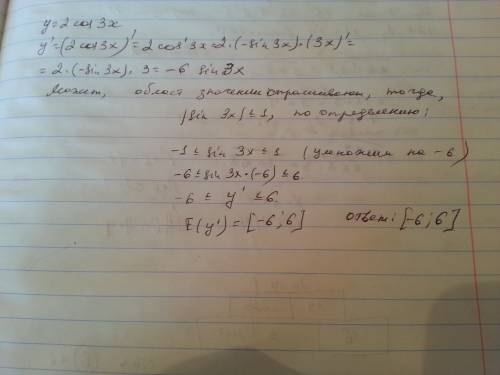 y = 2 cos 3x
y' = (2 cos 3x)' = 2 cos' 3x = 2 · (-sin 3x) · (3x)' =
= 2 · (-sin 3x) · 3 = -6 sin 3x
Может, област значении спрашивают, тогда,
|sin 3x| ≤ 1, по определению:
-1 ≤ sin 3x ≤ 1 (умножим на -6)
-6 ≤ sin 3x · (-6) ≤ 6
-6 ≤ y' ≤ 6
E(y') = [-6; 6] ответ: [-6; 6]